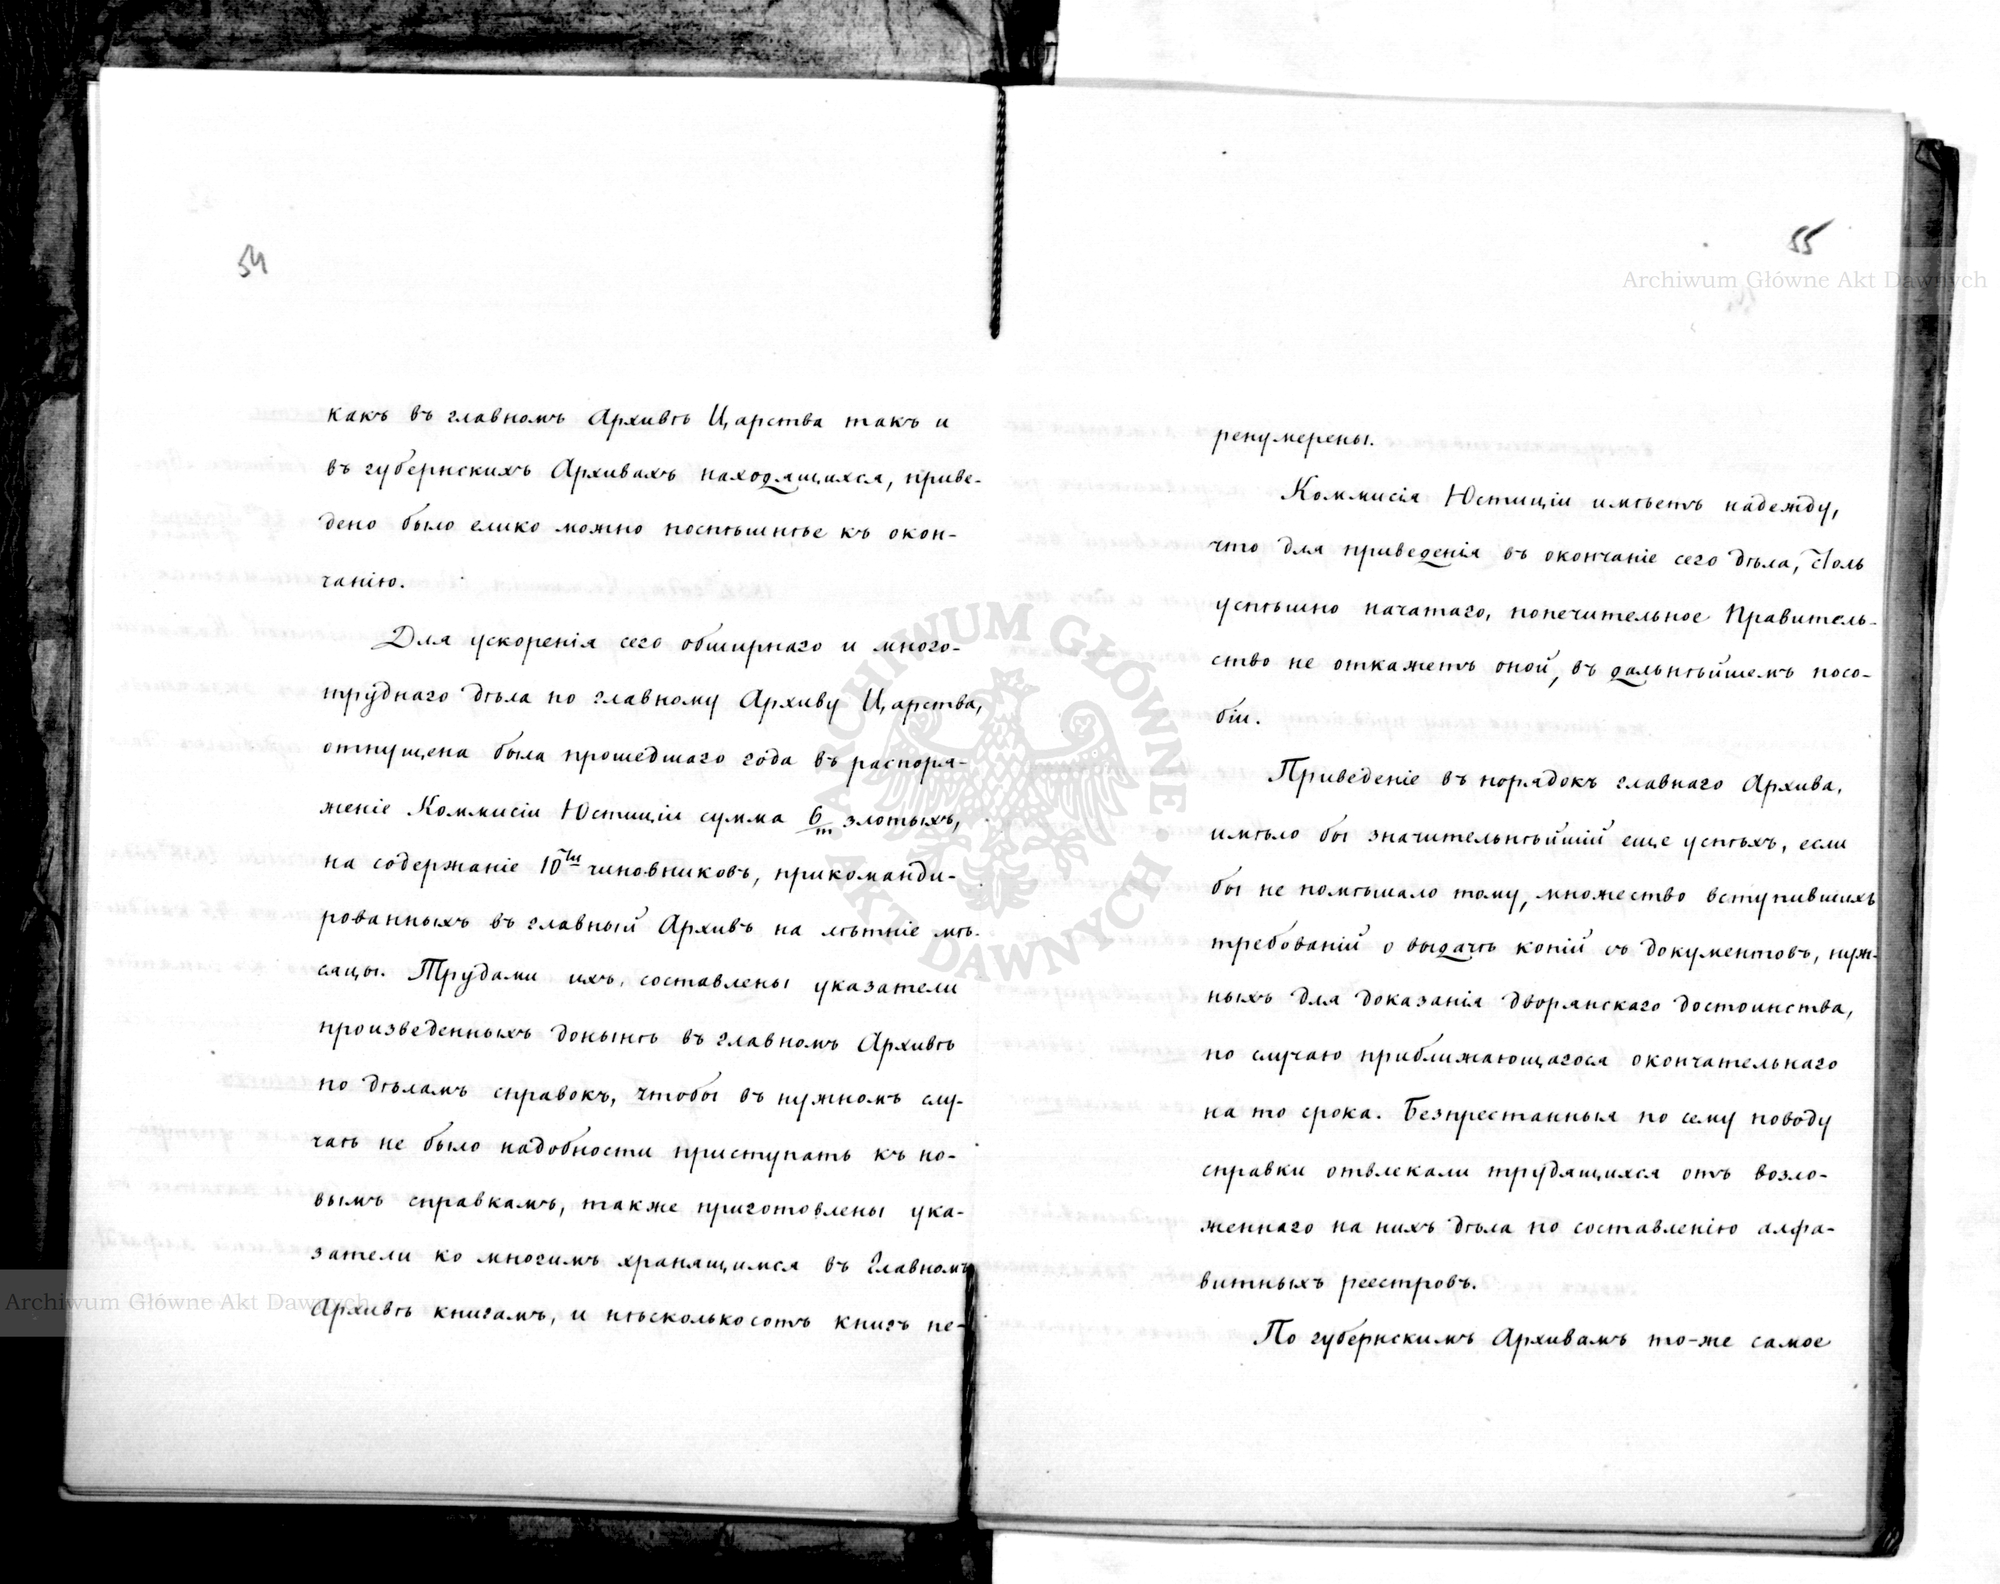 54
какъ въ главномъ Архивѣ Царства такъ и
въ губернскихъ Архивахъ находящихся, приве-
дено было елико можно поспѣшнѣе къ окон-
чанію.
Для ускоренія сего обширнаго и много-
труднаго дѣла по главному Архиву Царства,
отпущена была прошедшаго года въ распоря-
женіе Коммисіи Юстиціи сумма 6/m злотыхъ,
на содержаніе 10ти чиновниковъ, прикоманди-
рованныхъ въ главный Архивъ на лѣтніе мѣ-
сяцы. Трудами ихъ, составлены указатели
произведенныхъ донынѣ въ главномъ Архивѣ
по дѣламъ справокъ, чтобы въ нужномъ слу-
чаѣ не было надобности приступать къ но-
вымъ справкамъ, также приготовлены ука-
затели ко многимъ хранящимся въ Главномъ
Архивѣ книгамъ, и нѣсколько сотъ книгъ пе-
55
ренумерены.
Коммисія Юстиціи имѣетъ надежду,
что для приведенія въ окончаніе сего дѣла, столь
успѣшно начатаго, попечительное Правитель-
ство не откажетъ оной, въ дальнѣйшемъ посо-
біи.
Приведеніе въ порядокъ главнаго Архива,
имѣло бы значительнѣйшій еще успѣхъ, если
бы не помѣшало тому, множество вступившихъ
требованій о выдачѣ копій съ документовъ, нуж-
ныхъ для доказанія дворянскаго достоинства,
по случаю приближающагося окончательнаго
на то срока. Безпрестанныя по сему поводу
справки отвлекали трудящихся отъ возло-
женнаго на нихъ дѣла по составленію алфа-
витныхъ реестровъ.
По губернскимъ Архивамъ то-же самое
Archiwum Główne Akt Dawnych
Archiwum Główne Akt Dawnych
ARCHIWUM GŁÓWNE AKT DAWNYCH